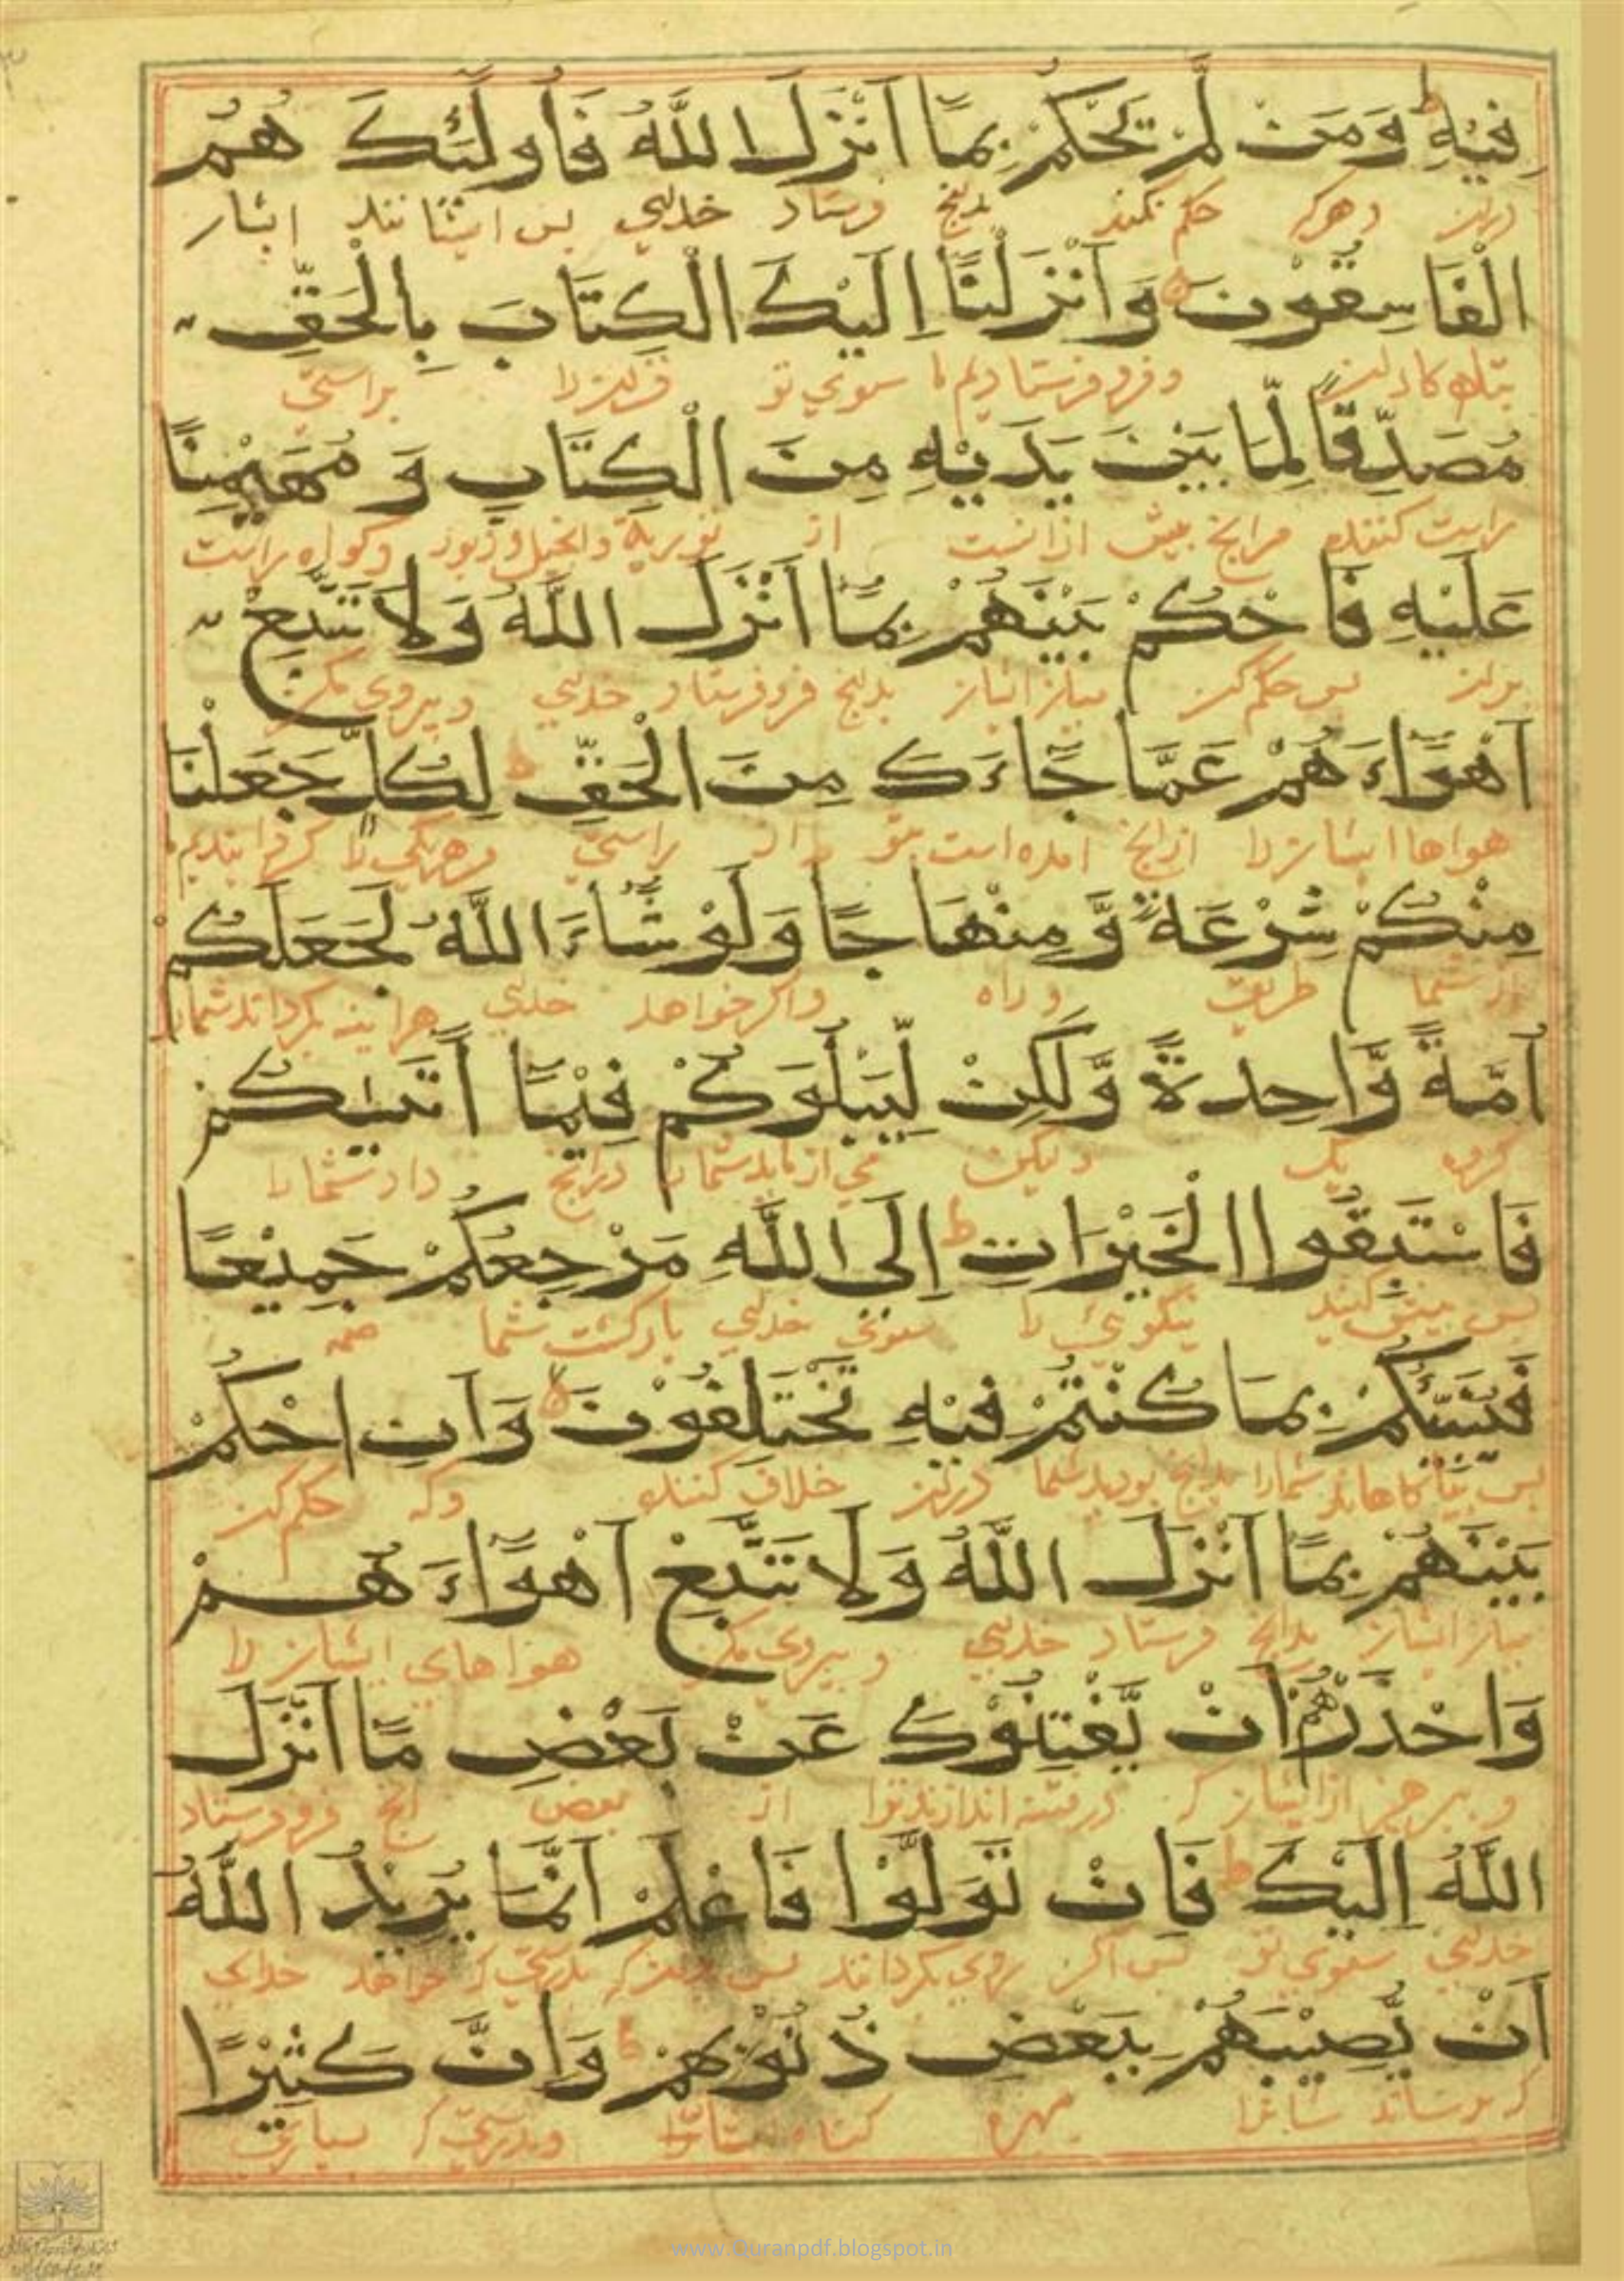 فِيْهِ ط وَمَنْ لَّمْ يَحْكُمْ بِمَا اَنْزَلَ اللّٰهُ فَاُولٰئِكَ هُمُ
دران وهركه حكم نكند بدانج فرستاد خداي پس ايشانند ايشان
الْفَاسِقُوْنَ وَاَنْزَلْنَا اِلَيْكَ الْكِتَابَ بِالْحَقِّ
وفرو فرستاديم ما سوي تو قران را براستي
مُصَدِّقًا لِّمَا بَيْنَ يَدَيْهِ مِنَ الْكِتَابِ وَ مُهَيْمِنًا
راست كننده مرانج پيش ازانست از تورية وانجيل وزبور وكواه راست
عَلَيْهِ فَاحْكُمْ بَيْنَهُمْ بِمَا اَنْزَلَ اللّٰهُ وَلَا تَتَّبِعْ
بران پس حكم كن ميان ايشان بدانج فرو فرستاد خداي وپيروي مكن
اَهْوَاءَهُمْ عَمَّا جَاءَكَ مِنَ الْحَقِّ ط لِكُلٍّ جَعَلْنَا
هواها ايشان را ازانج امده است بتو از راستي هريكي را كردانيديم
مِنْكُمْ شِرْعَةً وَّمِنْهَاجًا وَلَوْ شَاءَ اللّٰهُ لَجَعَلَكُمْ
از شما طريق وراه واكر خواهد خداي هراينه كرداند شمارا
اُمَّةً وَّاحِدَةً وَّلٰكِنْ لِّيَبْلُوَكُمْ فِيْمَا اٰتٰيكُمْ
كروه يك وليكن مي ازمايد شمارا درانج داد شمارا
فَاسْتَبِقُوا الْخَيْرَاتِ ط اِلَى اللّٰهِ مَرْجِعُكُمْ جَمِيْعًا
پس پيش كنيد نيكوئي را سوي خداي بازكشت شما همه
فَيُنَبِّئُكُمْ بِمَا كُنْتُمْ فِيْهِ تَخْتَلِفُوْنَ لا وَاَنِ احْكُمْ
شمارا بدانج بوديد شما دران خلاف كننده وكه حكم كن
بَيْنَهُمْ بِمَا اَنْزَلَ اللّٰهُ وَلَا تَتَّبِعْ اَهْوَاءَ هُمْ
ميان ايشان بدانج فرستاد خداي وپيروي مكن هواهاي ايشان را
وَاحْذَرْهُمْ اَنْ يَّفْتِنُوْكَ عَنْ بَعْضِ مَا اَنْزَلَ
وبپرهيز از ايشان كه در فتنه اندازند ترا از بعض انج فرو فرستاد
اللّٰهُ اِلَيْكَ ط فَاِنْ تَوَلَّوْا فَاعْلَمْ اَنَّمَا يُرِيْدُ اللّٰهُ
خداي سوي تو پس اكر روي بكردانند پس بدانكه بدرستي كه خواهد خداي
اَنْ يُّصِيْبَهُمْ بِبَعْضِ ذُنُوْبِهِمْ ط وَاِنَّ كَثِيْرًا
كه برساند بهره كناه وبدرستي كه بسياري
www.Quranpdf.blogspot.in